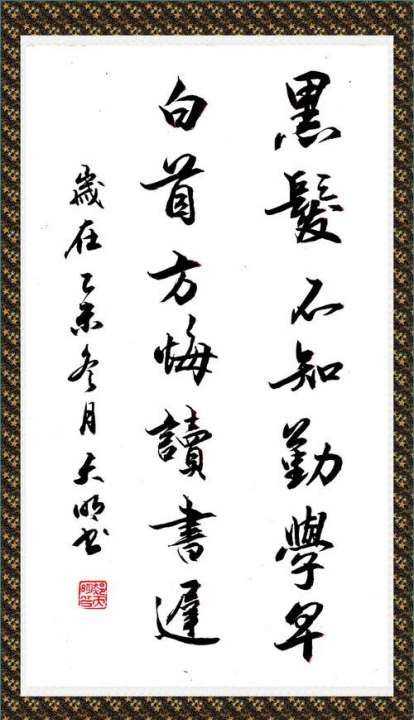 黑髮不知勤學早
白首方悔讀書遲
歲在乙未冬月天明书